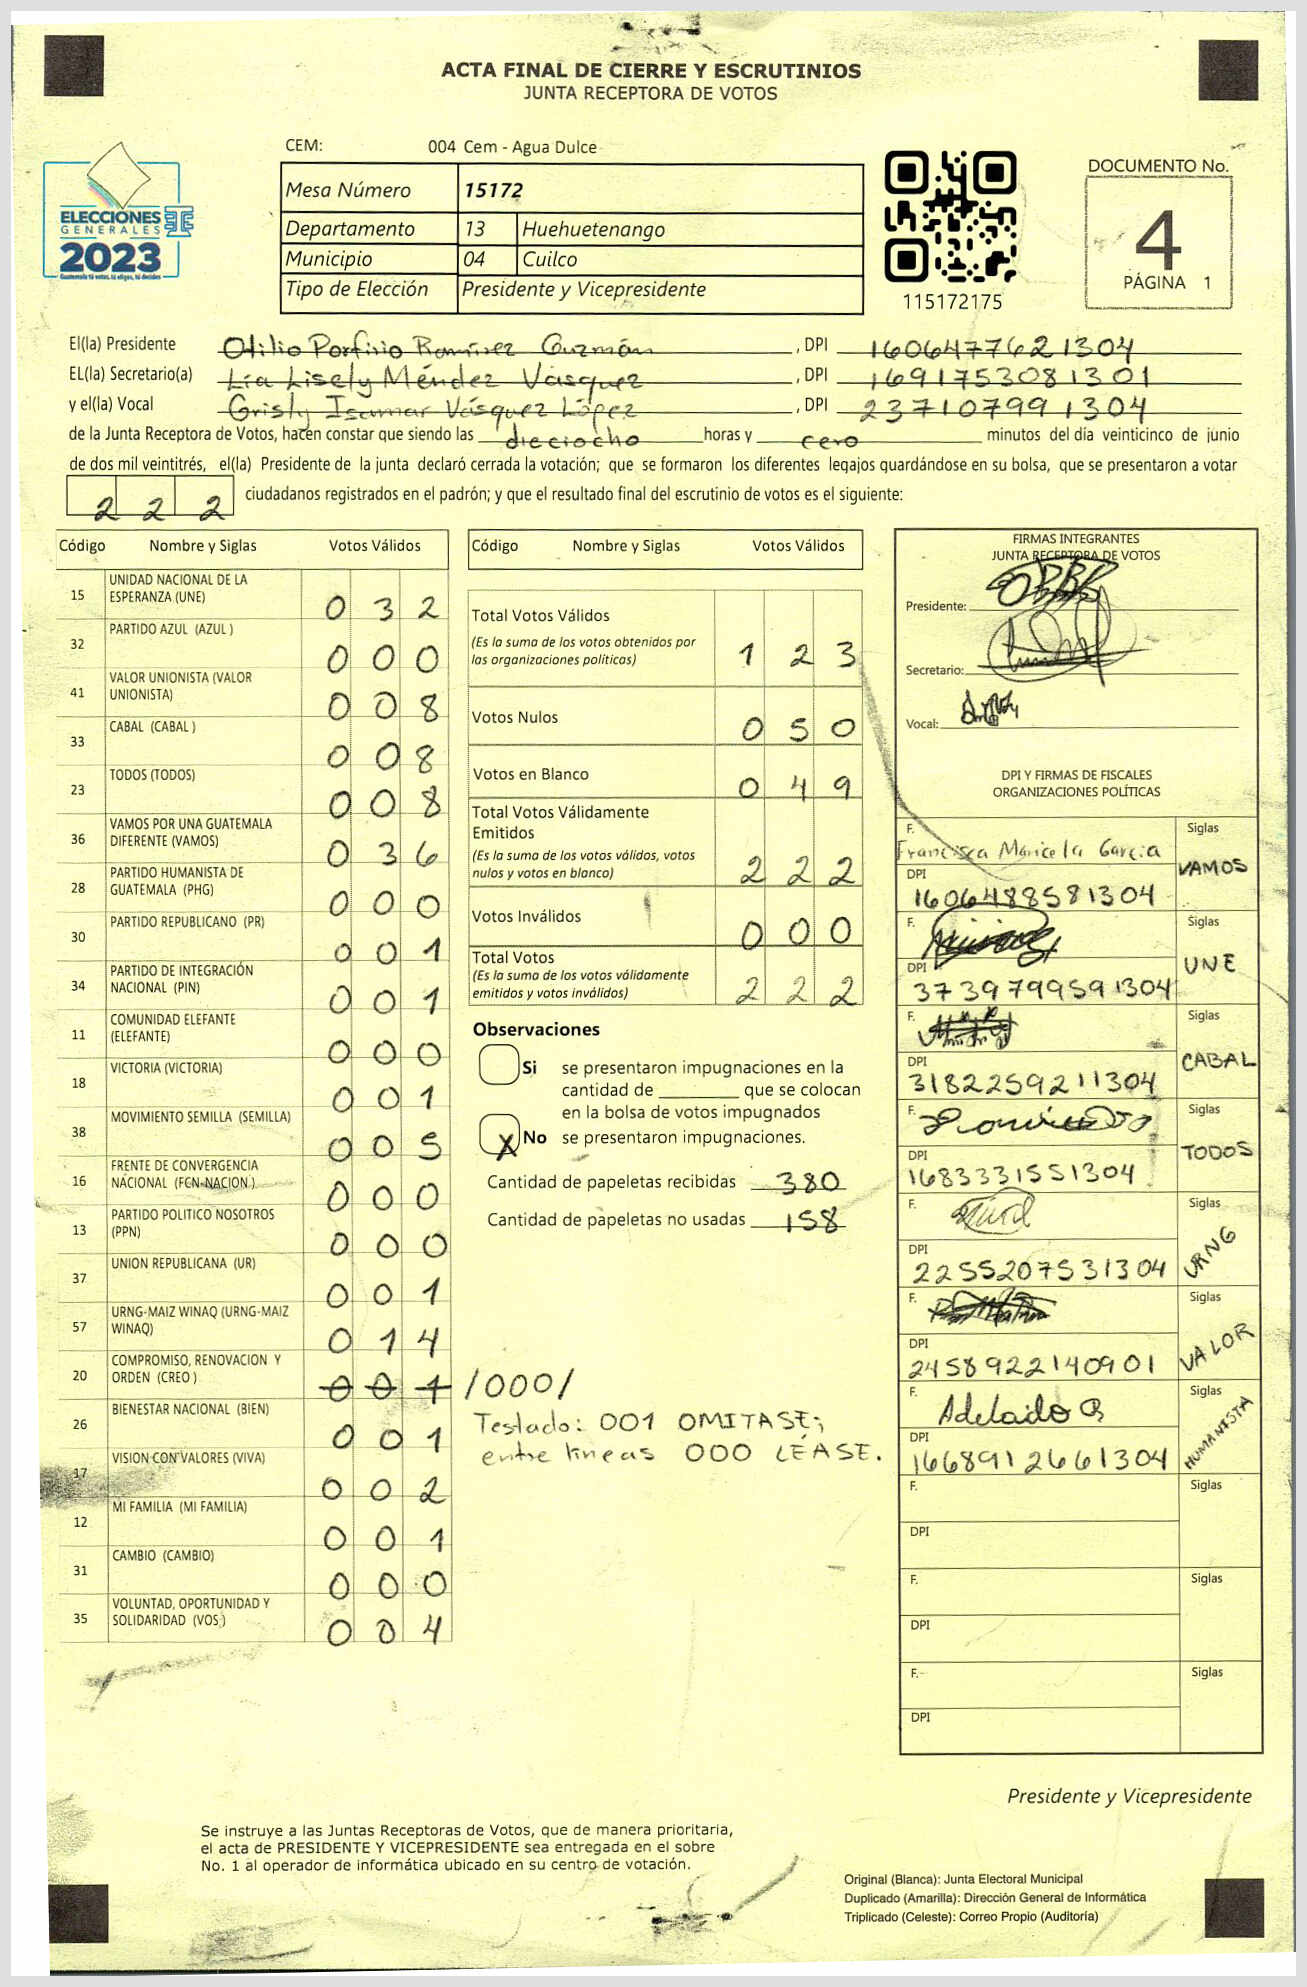 ACTA FINAL DE CIERRE Y ESCRUTINIOS
JUNTA RECEPTORA DE VOTOS
ELECCIONES
GENERALES
2023
Guatemala tú votas, tú eliges, tú decides
CEM: 004 Cem - Agua Dulce
Mesa Número 15172
Departamento 13 Huehuetenango
Municipio 04 Cuilco
Tipo de Elección Presidente y Vicepresidente
115172175
DOCUMENTO No.
4
PÁGINA 1
El(la) Presidente Otilio Porfirio Ramírez Guzmán, DPI 1606477621304
EL(la) Secretario(a) Lia Lisely Méndez Vásquez, DPI 1691753081301
y el(la) Vocal Grisly Isamar Vásquez López, DPI 2371079991304
de la Junta Receptora de Votos, hacen constar que siendo las dieciocho horas y cero minutos del día veinticinco de junio
de dos mil veintitrés, el(la) Presidente de la junta declaró cerrada la votación; que se formaron los diferentes legajos guardándose en su bolsa, que se presentaron a votar
222 ciudadanos registrados en el padrón; y que el resultado final del escrutinio de votos es el siguiente:
Código Nombre y Siglas Votos Válidos
15 UNIDAD NACIONAL DE LA
ESPERANZA (UNE) 032
32 PARTIDO AZUL (AZUL ) 000
41 VALOR UNIONISTA (VALOR
UNIONISTA) 008
33 CABAL (CABAL ) 008
23 TODOS (TODOS) 008
36 VAMOS POR UNA GUATEMALA
DIFERENTE (VAMOS) 036
28 PARTIDO HUMANISTA DE
GUATEMALA (PHG) 000
30 PARTIDO REPUBLICANO (PR) 001
34 PARTIDO DE INTEGRACIÓN
NACIONAL (PIN) 001
11 COMUNIDAD ELEFANTE
(ELEFANTE) 000
18 VICTORIA (VICTORIA) 001
38 MOVIMIENTO SEMILLA (SEMILLA) 005
16 FRENTE DE CONVERGENCIA
NACIONAL (FCN-NACION ) 000
13 PARTIDO POLITICO NOSOTROS
(PPN) 000
37 UNION REPUBLICANA (UR) 001
57 URNG-MAIZ WINAQ (URNG-MAIZ
WINAQ) 014
20 COMPROMISO, RENOVACION Y
ORDEN (CREO ) 001 /000/
26 BIENESTAR NACIONAL (BIEN) 001
17 VISION CON VALORES (VIVA) 002
12 MI FAMILIA (MI FAMILIA) 001
31 CAMBIO (CAMBIO) 000
35 VOLUNTAD, OPORTUNIDAD Y
SOLIDARIDAD (VOS ) 004
Código Nombre y Siglas Votos Válidos
Total Votos Válidos
(Es la suma de los votos obtenidos por
las organizaciones políticas) 123
Votos Nulos 050
Votos en Blanco 049
Total Votos Válidamente
Emitidos
(Es la suma de los votos válidos, votos
nulos y votos en blanco) 222
Votos Inválidos 000
Total Votos
(Es la suma de los votos válidamente
emitidos y votos inválidos) 222
Observaciones
Si se presentaron impugnaciones en la
cantidad de ________ que se colocan
en la bolsa de votos impugnados
X No se presentaron impugnaciones.
Cantidad de papeletas recibidas 380
Cantidad de papeletas no usadas 158
Testado: 001 OMITASE;
entre lineas 000 LÉASE.
FIRMAS INTEGRANTES
JUNTA RECEPTORA DE VOTOS
Presidente:
Secretario:
Vocal:
DPI Y FIRMAS DE FISCALES
ORGANIZACIONES POLÍTICAS
F. Siglas
Francisca Maricela Garcia VAMOS
DPI
1606488581304
F. Siglas
UNE
DPI
3739799591304
F. Siglas
CABAL
DPI
3182259211304
F. Siglas
TODOS
DPI
1683331551304
F. Siglas
URNG
DPI
2255207531304
F. Siglas
VALOR
DPI
2458922140901
F. Siglas
Adelaido HUMANISTA
DPI
1668912661304
F. Siglas
DPI
F. Siglas
DPI
F. Siglas
DPI
Presidente y Vicepresidente
Se instruye a las Juntas Receptoras de Votos, que de manera prioritaria,
el acta de PRESIDENTE Y VICEPRESIDENTE sea entregada en el sobre
No. 1 al operador de informática ubicado en su centro de votación.
Original (Blanca): Junta Electoral Municipal
Duplicado (Amarilla): Dirección General de Informática
Triplicado (Celeste): Correo Propio (Auditoría)